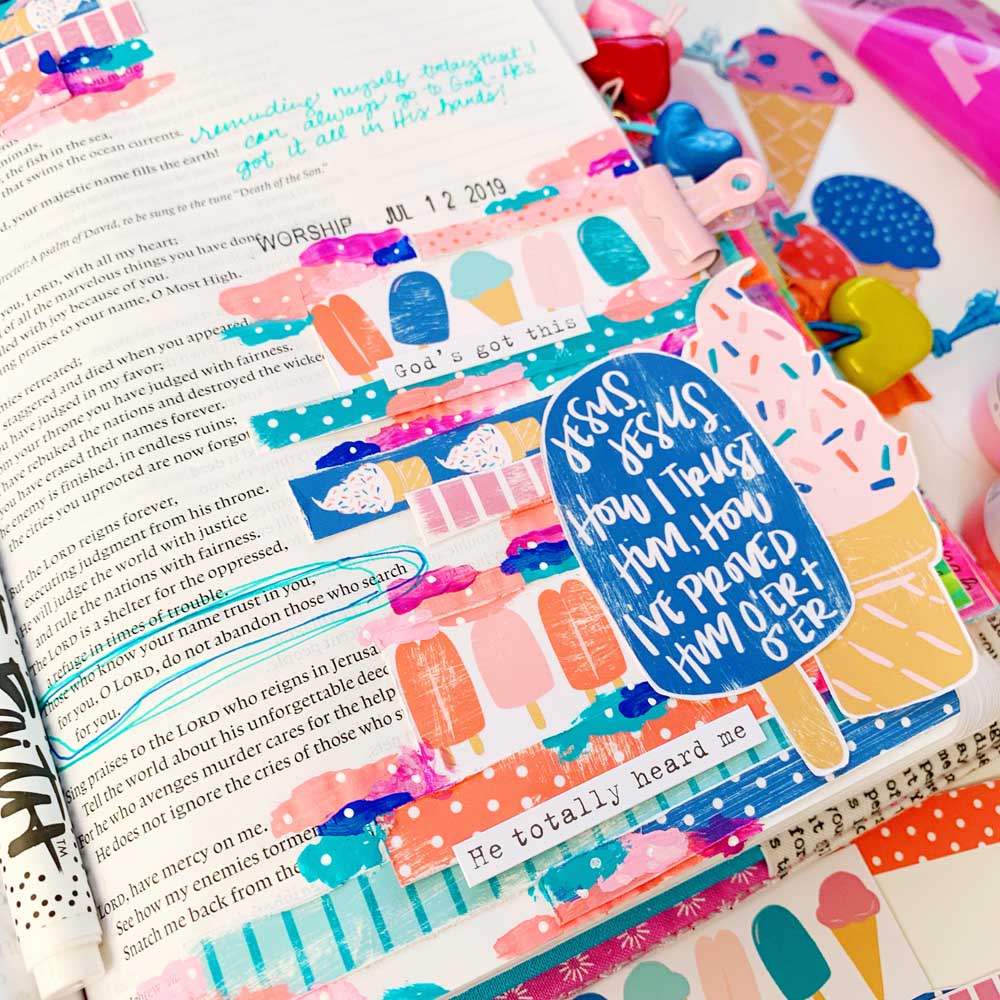 reminding myself today that I
can always go to God - He's
got it all in His hands!
the fish in the sea,
that swims the ocean currents.
, your majestic name fills the earth!
director: A psalm of David, to be sung to the tune "Death of the Son."
WORSHIP JUL 12 2019
you, LORD, with all my heart;
of all the marvelous things you have done
filled with joy because of you.
praises to your name, O Most High.
retreated;
staggered and died when you appeared
you have judged in my favor;
from your throne you have judged with fairness.
have rebuked the nations and destroyed the wicked
you have erased their names forever.
enemy is finished, in endless ruins;
the cities you uprooted are now forgot
But the LORD reigns forever,
executing judgment from his throne.
He will judge the world with justice
and rule the nations with fairness.
The LORD is a shelter for the oppressed,
a refuge in times of trouble.
those who know your name trust in you,
for you, O LORD, do not abandon those who search
for you.
Sing praises to the LORD who reigns in Jerusa
Tell the world about his unforgettable deed
For he who avenges murder cares for the help
He does not ignore the cries of those who s
LORD, have mercy on me.
See how my enemies tormen
Snatch me back from the
God's got this
JESUS,
JESUS,
HOW I TRUST
HIM, HOW
I'VE PROVED
HIM O'ER +
O'ER
He totally heard me
FAITH™